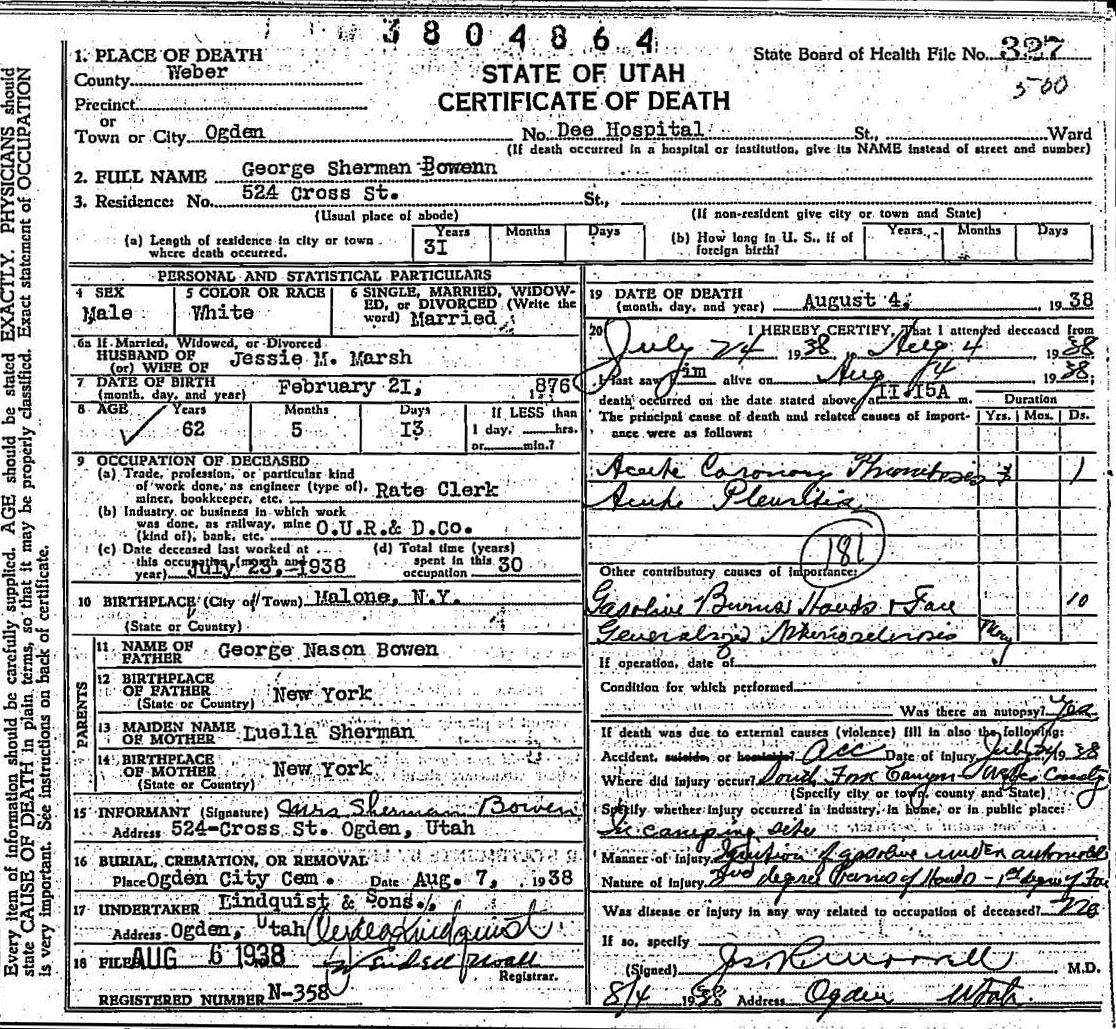 3804864
1. PLACE OF DEATH
State Board of Health File No. 327
County Weber
STATE OF UTAH
500
Precinct
CERTIFICATE OF DEATH
or
Town or City Ogden No. Dee Hospital St., Ward
(If death occurred in a hospital or institution, give its NAME instead of street and number)
2. FULL NAME George Sherman Bowenn
3. Residence: No. 524 Cross St. St.,
(Usual place of abode) (If non-resident give city or town and State)
(a) Length of residence in city or town where death occurred. Years 31 Months Days
(b) How long in U. S., if of foreign birth? Years Months Days
PERSONAL AND STATISTICAL PARTICULARS
4 SEX Male
5 COLOR OR RACE White
6 SINGLE, MARRIED, WIDOWED, or DIVORCED (Write the word) Married
6a If Married, Widowed, or Divorced
HUSBAND OF Jessie M. Marsh
(or) WIFE OF
7 DATE OF BIRTH February 21, 876
(month, day, and year)
8 AGE Years 62 Months 5 Days 13 If LESS than 1 day, hrs. or min.?
9 OCCUPATION OF DECEASED
(a) Trade, profession, or particular kind
of work done, as engineer (type of), Rate Clerk
miner, bookkeeper, etc.
(b) Industry or business in which work
was done, as railway, mine O.U.R.& D.Co.
(kind of), bank, etc.
(c) Date deceased last worked at
this occupation (month and
year) July 23, 1938
(d) Total time (years)
spent in this 30
occupation
10 BIRTHPLACE (City or Town) Malone, N.Y.
(State or Country)
PARENTS
11 NAME OF FATHER George Nason Bowen
12 BIRTHPLACE OF FATHER New York
(State or Country)
13 MAIDEN NAME OF MOTHER Luella Sherman
14 BIRTHPLACE OF MOTHER New York
(State or Country)
15 INFORMANT (Signature) Mrs Sherman Bowen
Address 524-Cross St. Ogden, Utah
16 BURIAL, CREMATION, OR REMOVAL
Place Ogden City Cem. Date Aug. 7, 1938
17 UNDERTAKER Lindquist & Sons.
Address Ogden, Utah
18 FILED AUG 6 1938
Registrar.
REGISTERED NUMBER N-358
19 DATE OF DEATH August 4, 1938
(month, day, and year)
20 I HEREBY CERTIFY, That I attended deceased from
July 24 1938 Aug 4 1938
I last saw him alive on Aug 4 1938;
death occurred on the date stated above, at 11.15A m. Duration
The principal cause of death and related causes of importance were as follows: Yrs. Mos. Ds.
Acute Coronary Thrombosis & 1
Acute Pleuritis
181
Other contributory causes of importance:
Gasoline Burns Hands & Face 10
Generalized Arteriosclerosis Many
If operation, date of
Condition for which performed
Was there an autopsy? Yes
If death was due to external causes (violence) fill in also the following:
Accident, suicide, or homicide? Acc Date of injury July 24 1938
Where did injury occur? South Fork Canyon - Weber County
(Specify city or town, county and State)
Specify whether injury occurred in industry, in home, or in public place:
In camping site
Manner of injury Ignition of gasoline under automobil
Nature of injury 2nd degree Burns of Hands - 1st degree of Fac
Was disease or injury in any way related to occupation of deceased? No
If so, specify
(Signed) M.D.
8/4 1938 Address Ogden Utah.
Every item of information should be carefully supplied. AGE should be stated EXACTLY. PHYSICIANS should
state CAUSE OF DEATH in plain terms, so that it may be properly classified. Exact statement of OCCUPATION
is very important. See instructions on back of certificate.